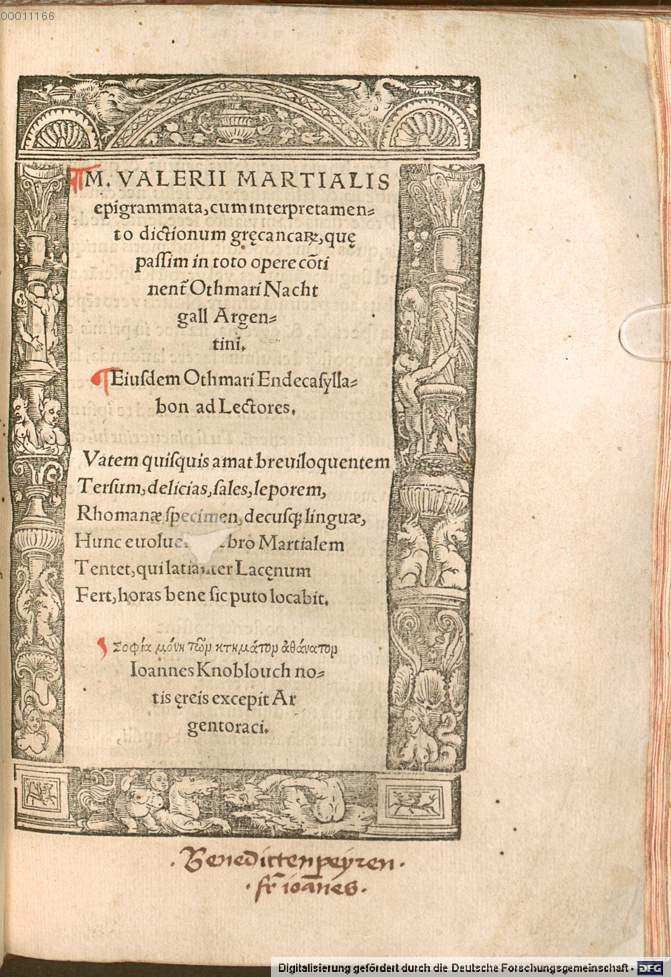 00011166
M. VALERII MARTIALIS
epigrammata, cum interpretamen=
to dictionum gręcancaꝝ, quę
passim in toto opere cōti
nent᷑ Othmari Nacht
gall Argen=
tini.
Eiusdem Othmari Endecasylla=
bon ad Lectores.
Vatem quisquis amat breuiloquentem
Tersum, delicias, sales, leporem,
Rhomanæ specimen, decusq; linguæ,
Hunc euolue bro Martialem
Tentet, qui latianter Lacęnum
Fert, horas bene sic puto locabit.
Σοφία μόνη τῶν κτημάτον ἀθάνατον
Ioannes Knoblouch no=
tis ęreis excepit Ar
gentoraci.
. Benedictenpeyren .
. fr̄ ioan̄nes .
Digitalisierung gefördert durch die Deutsche Forschungsgemeinschaft - DFG